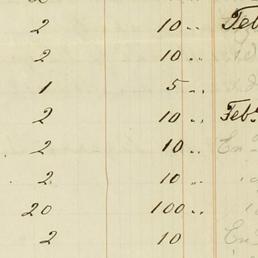 2 10 „ Feb
2 10 „
1 5 „
2 10 „ Feb
2 10 „
2 10 „
20 100 „
2 10